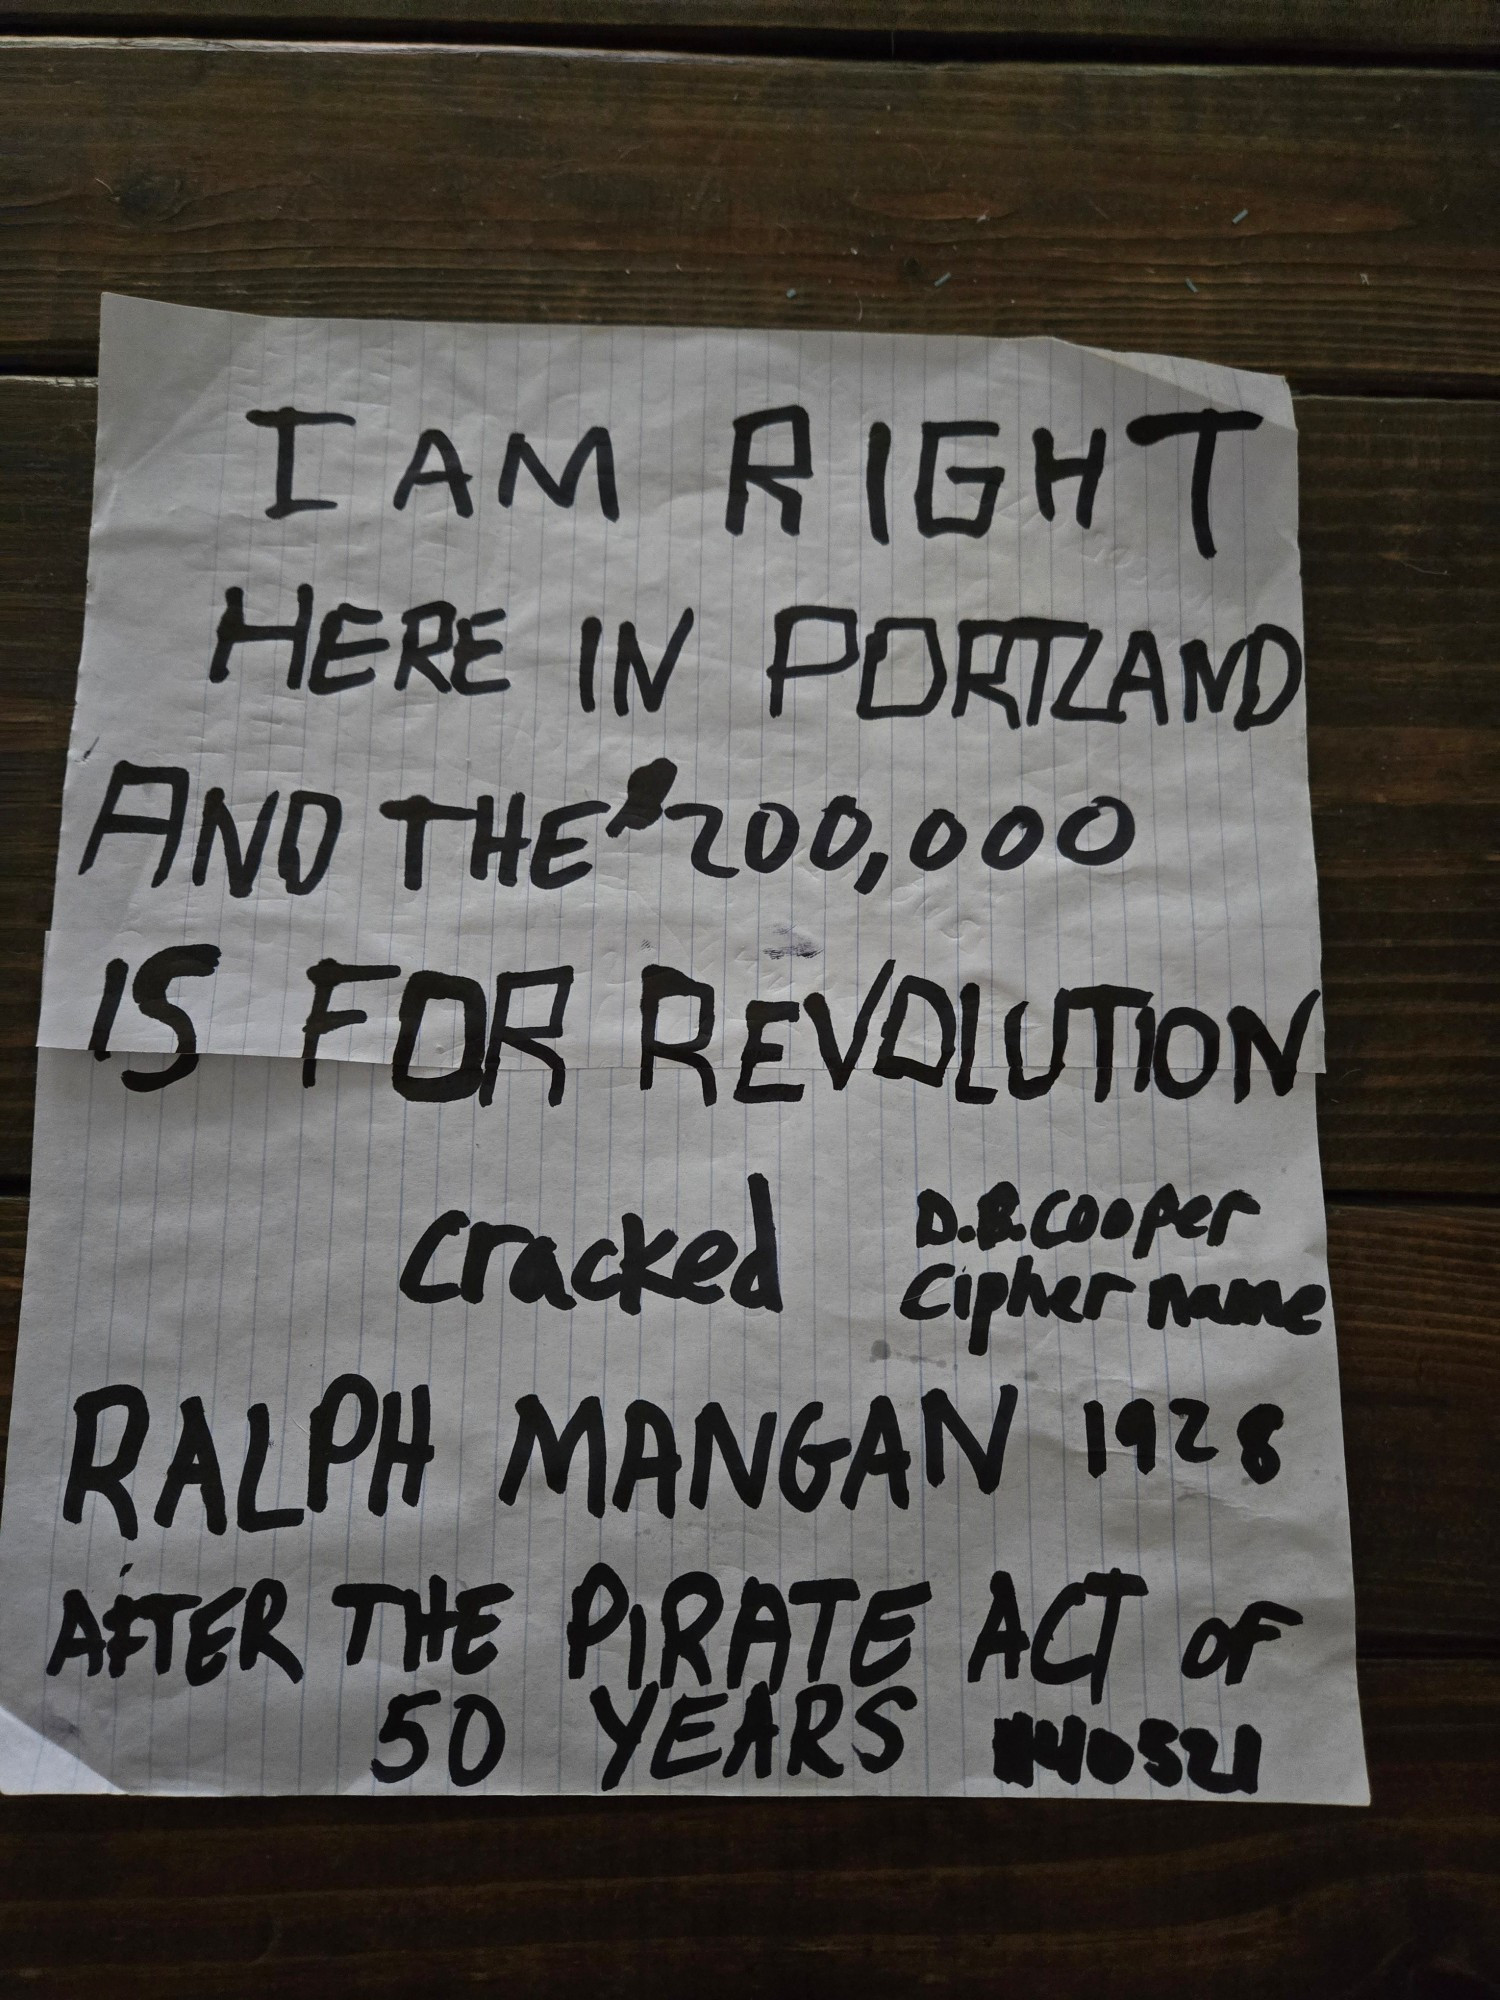 I AM RIGHT
HERE IN PORTLAND
AND THE $200,000
IS FOR REVOLUTION
cracked D.B. Cooper
Cipher name
RALPH MANGAN 1928
AFTER THE PIRATE ACT OF
50 YEARS